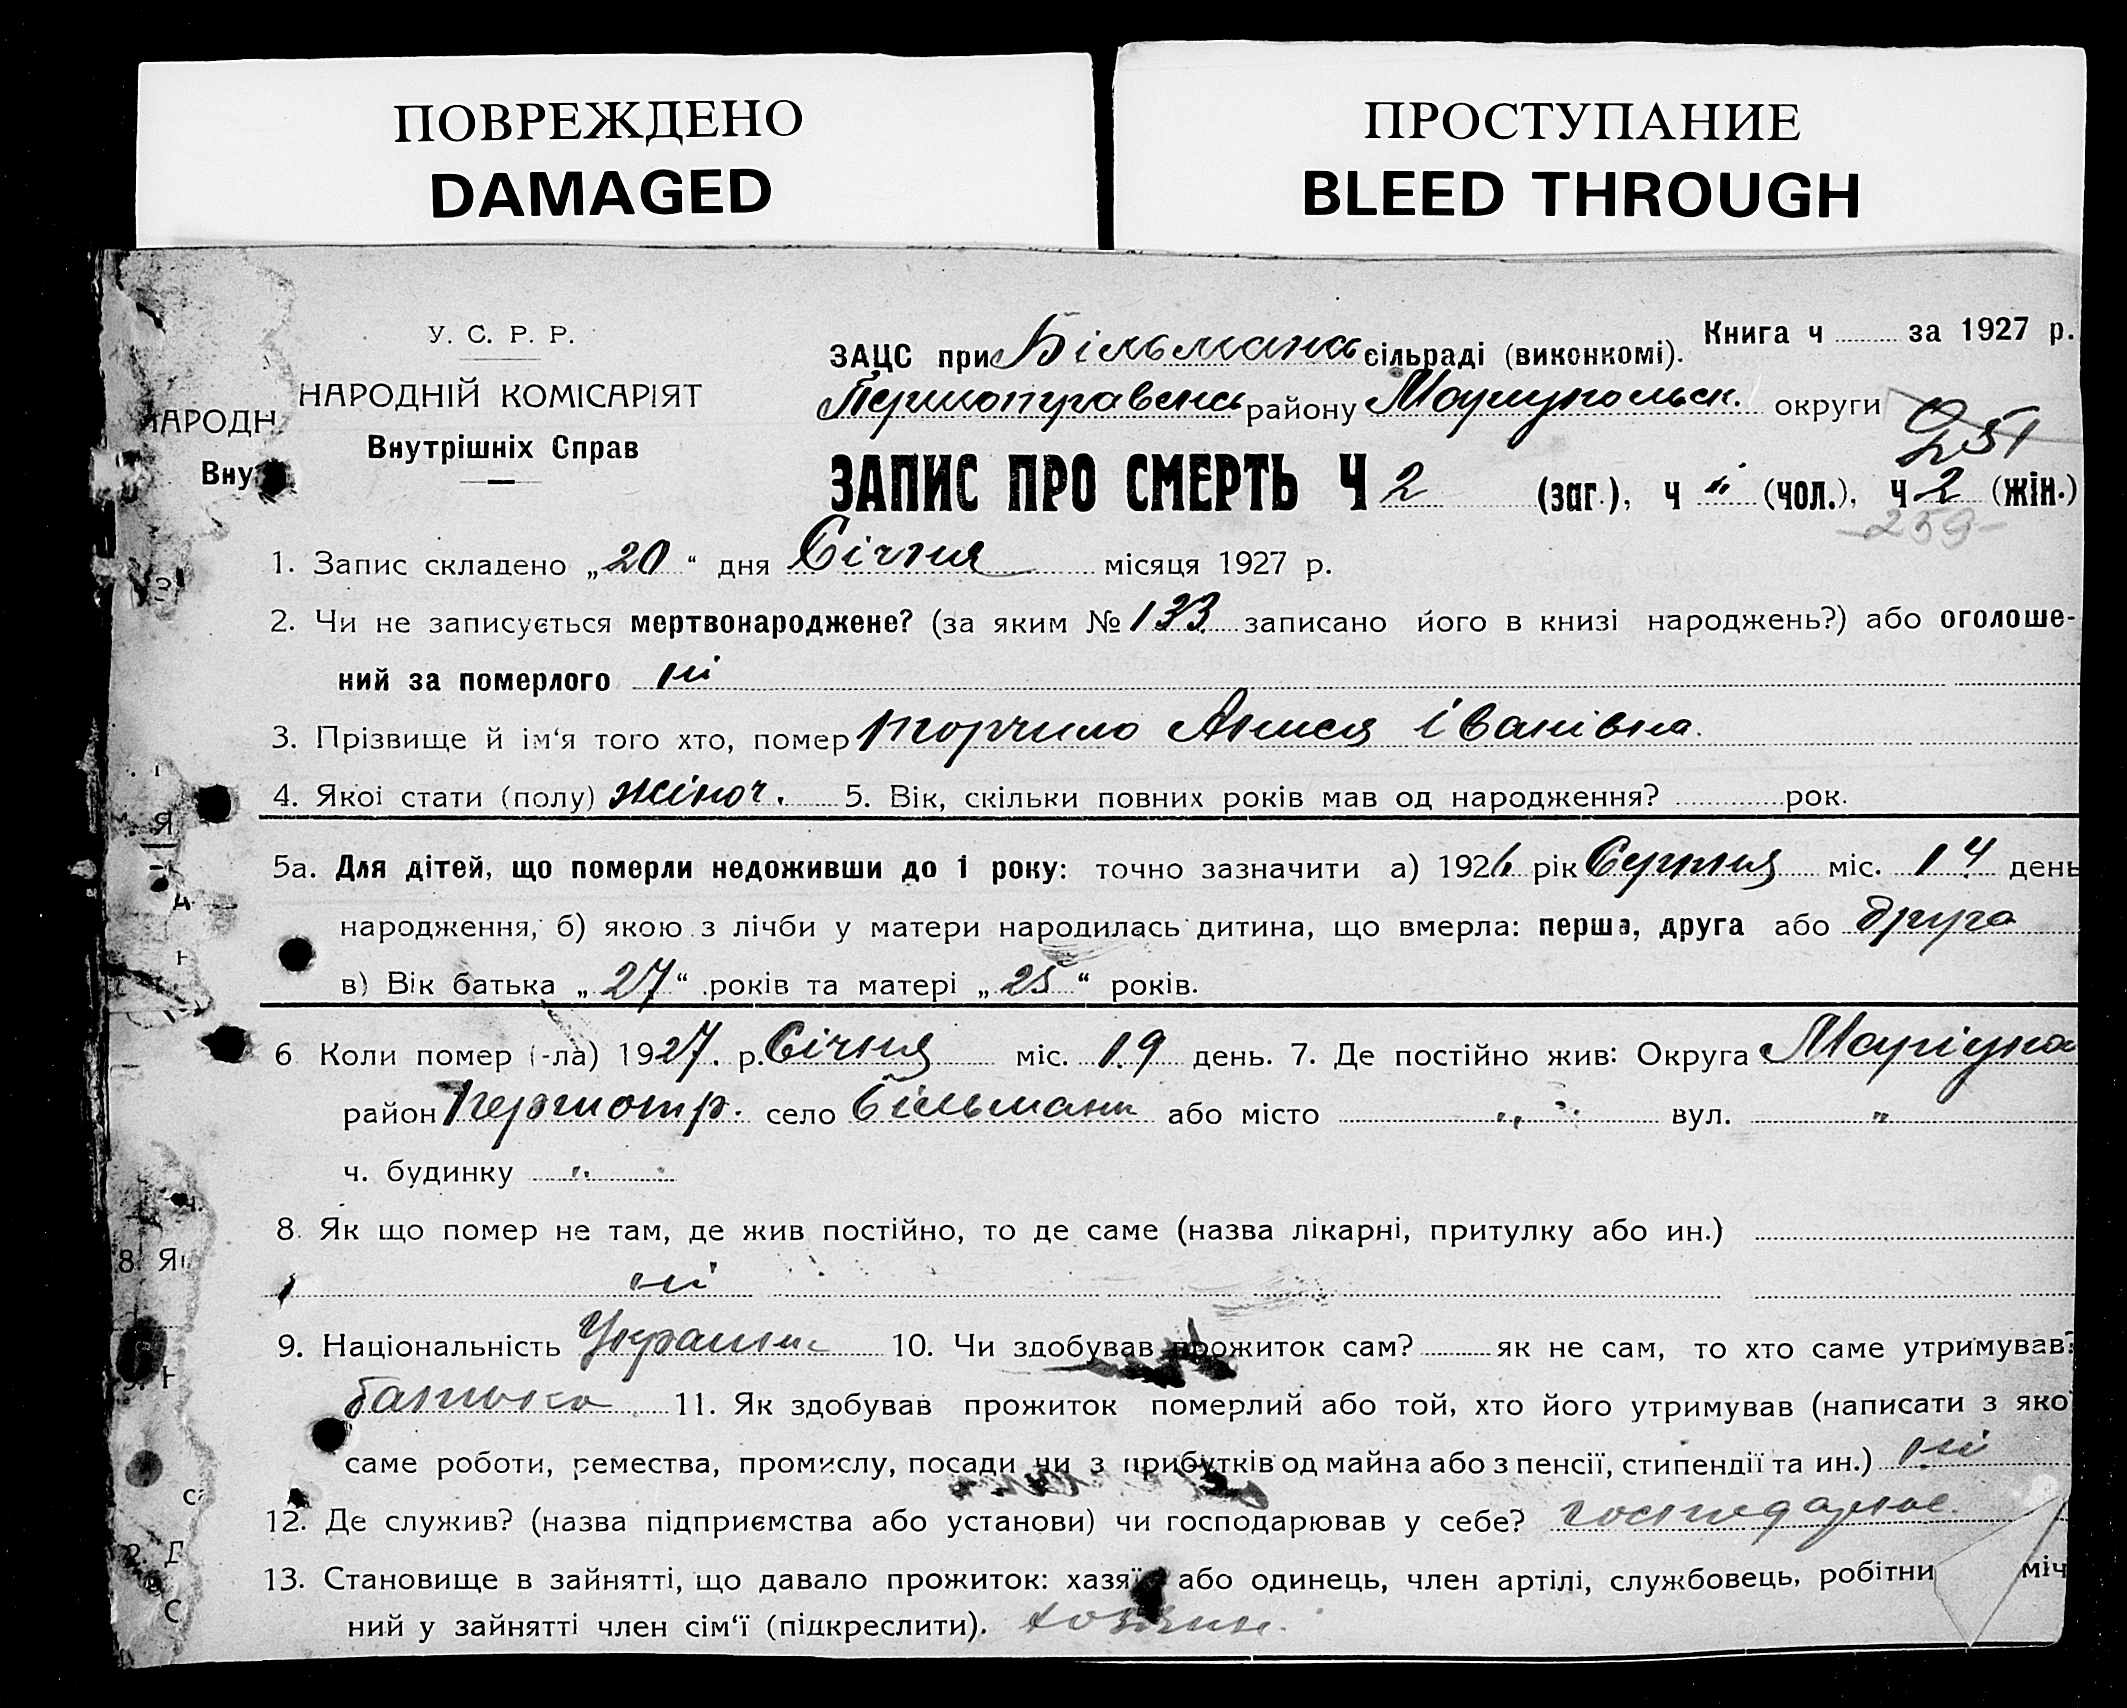 ПОВРЕЖДЕНО
DAMAGED
ПРОСТУПАНИЕ
BLEED THROUGH
У. С. Р. Р.
НАРОДНІЙ КОМІСАРІЯТ
Внутрішніх Справ
АРОДН
Вну
Книга ч за 1927 р.
ЗАЦС при Більмансь сільраді (виконкомі).
району Маріупольськ. округи
251
ЗАПИС ПРО СМЕРТЬ Ч 2 (заг.), ч " (чол.), ч 2 (жін.)
259
1. Запис складено „20“ дня Січня місяця 1927 р.
2. Чи не записується мертвонароджене? (за яким № 133 записано його в книзі народжень?) або оголоше-
ний за померлого ні
3. Прізвище й ім'я того хто, помер Торчило Анися Іванівна.
4. Якоі стати (полу) жіноч. 5. Вік, скільки повних років мав од народження? рок.
5а. Для дітей, що померли недоживши до 1 року: точно зазначити а) 1926 рік Серпня міс. 14 день
народження, б) якою з лічби у матери народилась дитина, що вмерла: перша, друга або друга
в) Вік батька „27“ років та матері „25“ років.
6 Коли помер (-ла) 1927. р. Січня міс. 19 день. 7. Де постійно жив: Округа Маріупол
район село Більманк або місто " вул. "
ч. будинку "
8. Як що помер не там, де жив постійно, то де саме (назва лікарні, притулку або ин.)
ні
9. Національність 10. Чи здобував прожиток сам? як не сам, то хто саме утримував?
батько 11. Як здобував прожиток померлий або той, хто його утримував (написати з яко
саме роботи, ремества, промислу, посади чи з прибутків од майна або з пенсії, стипендії та ин.) ні
12. Де служив? (назва підприємства або установи) чи господарював у себе?
13. Становище в зайнятті, що давало прожиток: хазяї або одинець, член артілі, службовець, робітни міч
ний у зайнятті член сім'ї (підкреслити). хозяин.